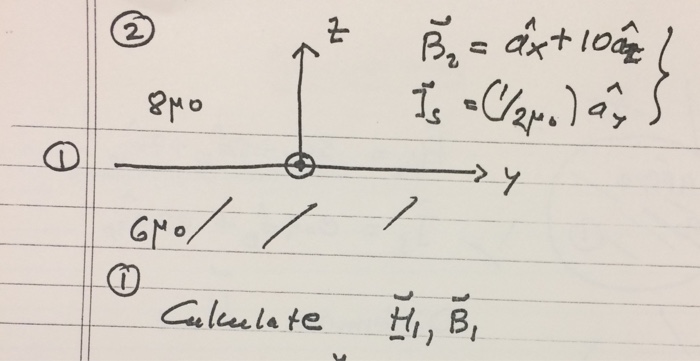 ②
z
B⃗₂ = âx + 10âz
8μ₀
I⃗s = (1/2μ₀) ây
①
y
6μ₀
①
Calculate H⃗₁, B⃗₁